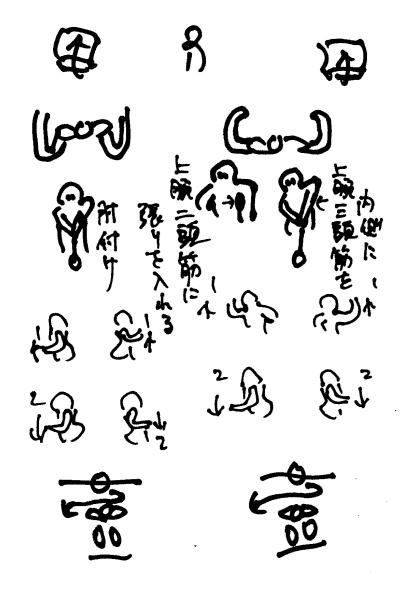 内側に
上腕三頭筋を
上腕二頭筋に
張りを入れる
肘付け
1
1
1
1
2
2
2
2